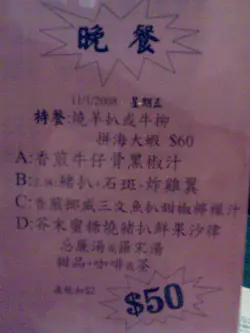 晚餐
11/1/2008 星期五
特餐:燒羊扒或牛柳
拼海大蝦 $60
A:香煎牛仔骨黑椒汁
B:豬扒,石班,炸雞翼
C:香煎挪威三文魚扒甜椒檸檬汁
D:芥末蜜糖燒豬扒鮮果沙律
忌廉湯或羅宋湯
甜品,咖啡或茶
$50